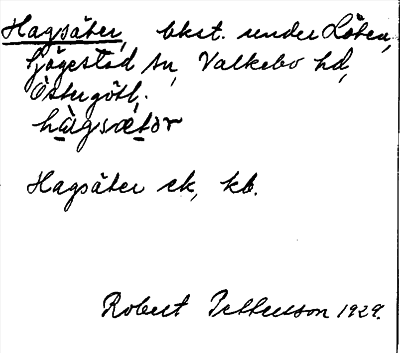 Hagsäter, bkst. under Löten,
Sjögestad sn, Valkebo hd,
Östergötl.
hàgsætər
Hagsäter ek, kb.
Robert Pettersson 1929.